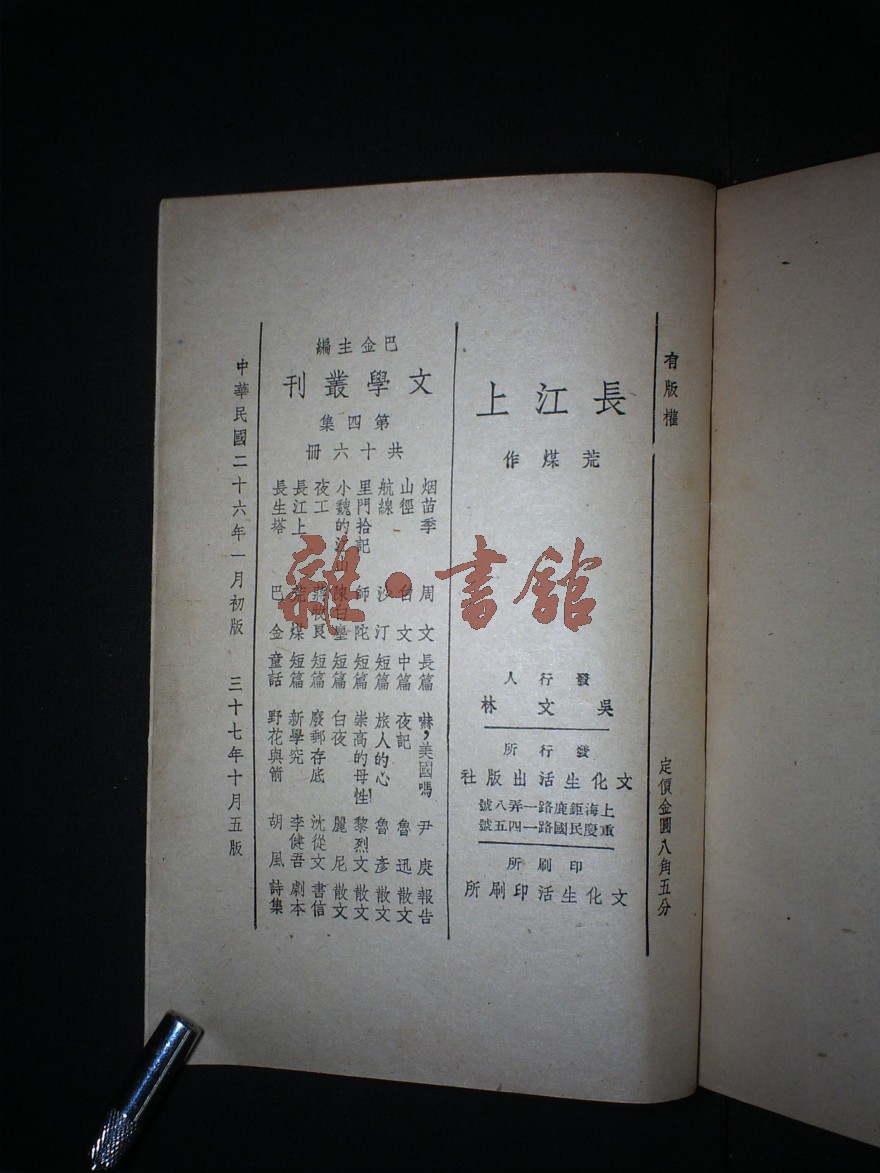 有版權
定價金圓八角五分
長江上
荒煤作
發行人
吳文林
發行所
文化生活出版社
上海鉅鹿路一弄八號
重慶民國路一四五號
印刷所
文化生活印刷所
巴金主編
文學叢刊
第四集
共十六冊
烟苗季 周文 長篇
山徑 白文 中篇
航線 沙汀 短篇
里門拾記 師陀 短篇
小魏的江山 陳白塵 短篇
夜工 蔣牧良 短篇
長江上 荒煤 短篇
長生塔 巴金 童話
嚇,美國嗎 尹庚 報告
夜記 魯迅 散文
旅人的心 魯彥 散文
崇高的母性 黎烈文 散文
白夜 麗尼 散文
廢郵存底 沈從文 書信
新學究 李健吾 劇本
野花與箭 胡風 詩集
中華民國二十六年一月初版 三十七年十月五版
雜·書館